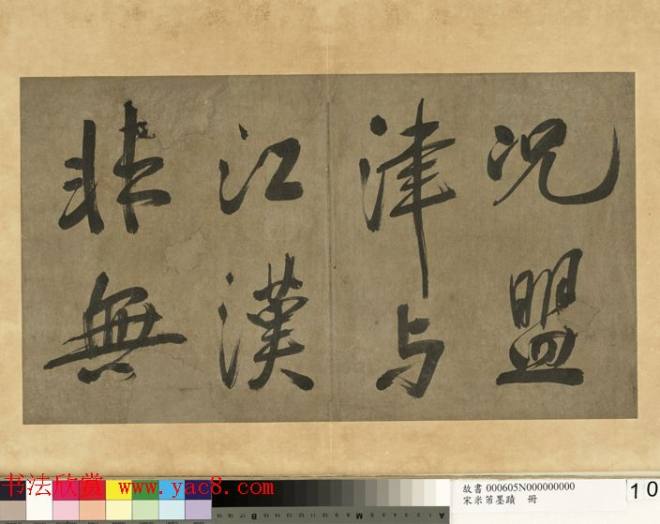 况盟
津与
江漢
非無
书法欣赏 www.yac8.com
故書 000605N000000000
宋米芾墨蹟 冊
10